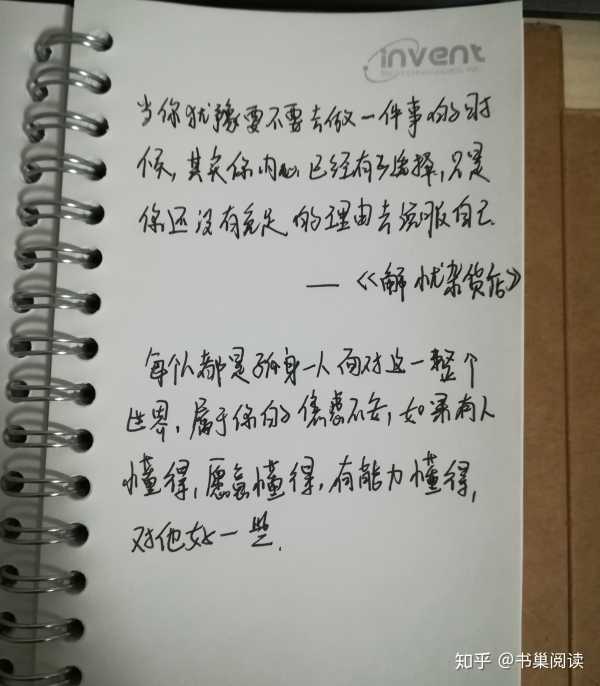 invent
当你犹豫要不要去做一件事的时
候，其实你内心已经有了选择，只是
你还没有充足的理由去说服自己.
——《解忧杂货店》
每个人都是孤身一人面对这一整个
世界，属于你的焦虑不安，如果有人
懂得，愿意懂得，有能力懂得，
对他好一些.
知乎 @书巢阅读